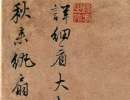 詳細看大
秋來紈扇